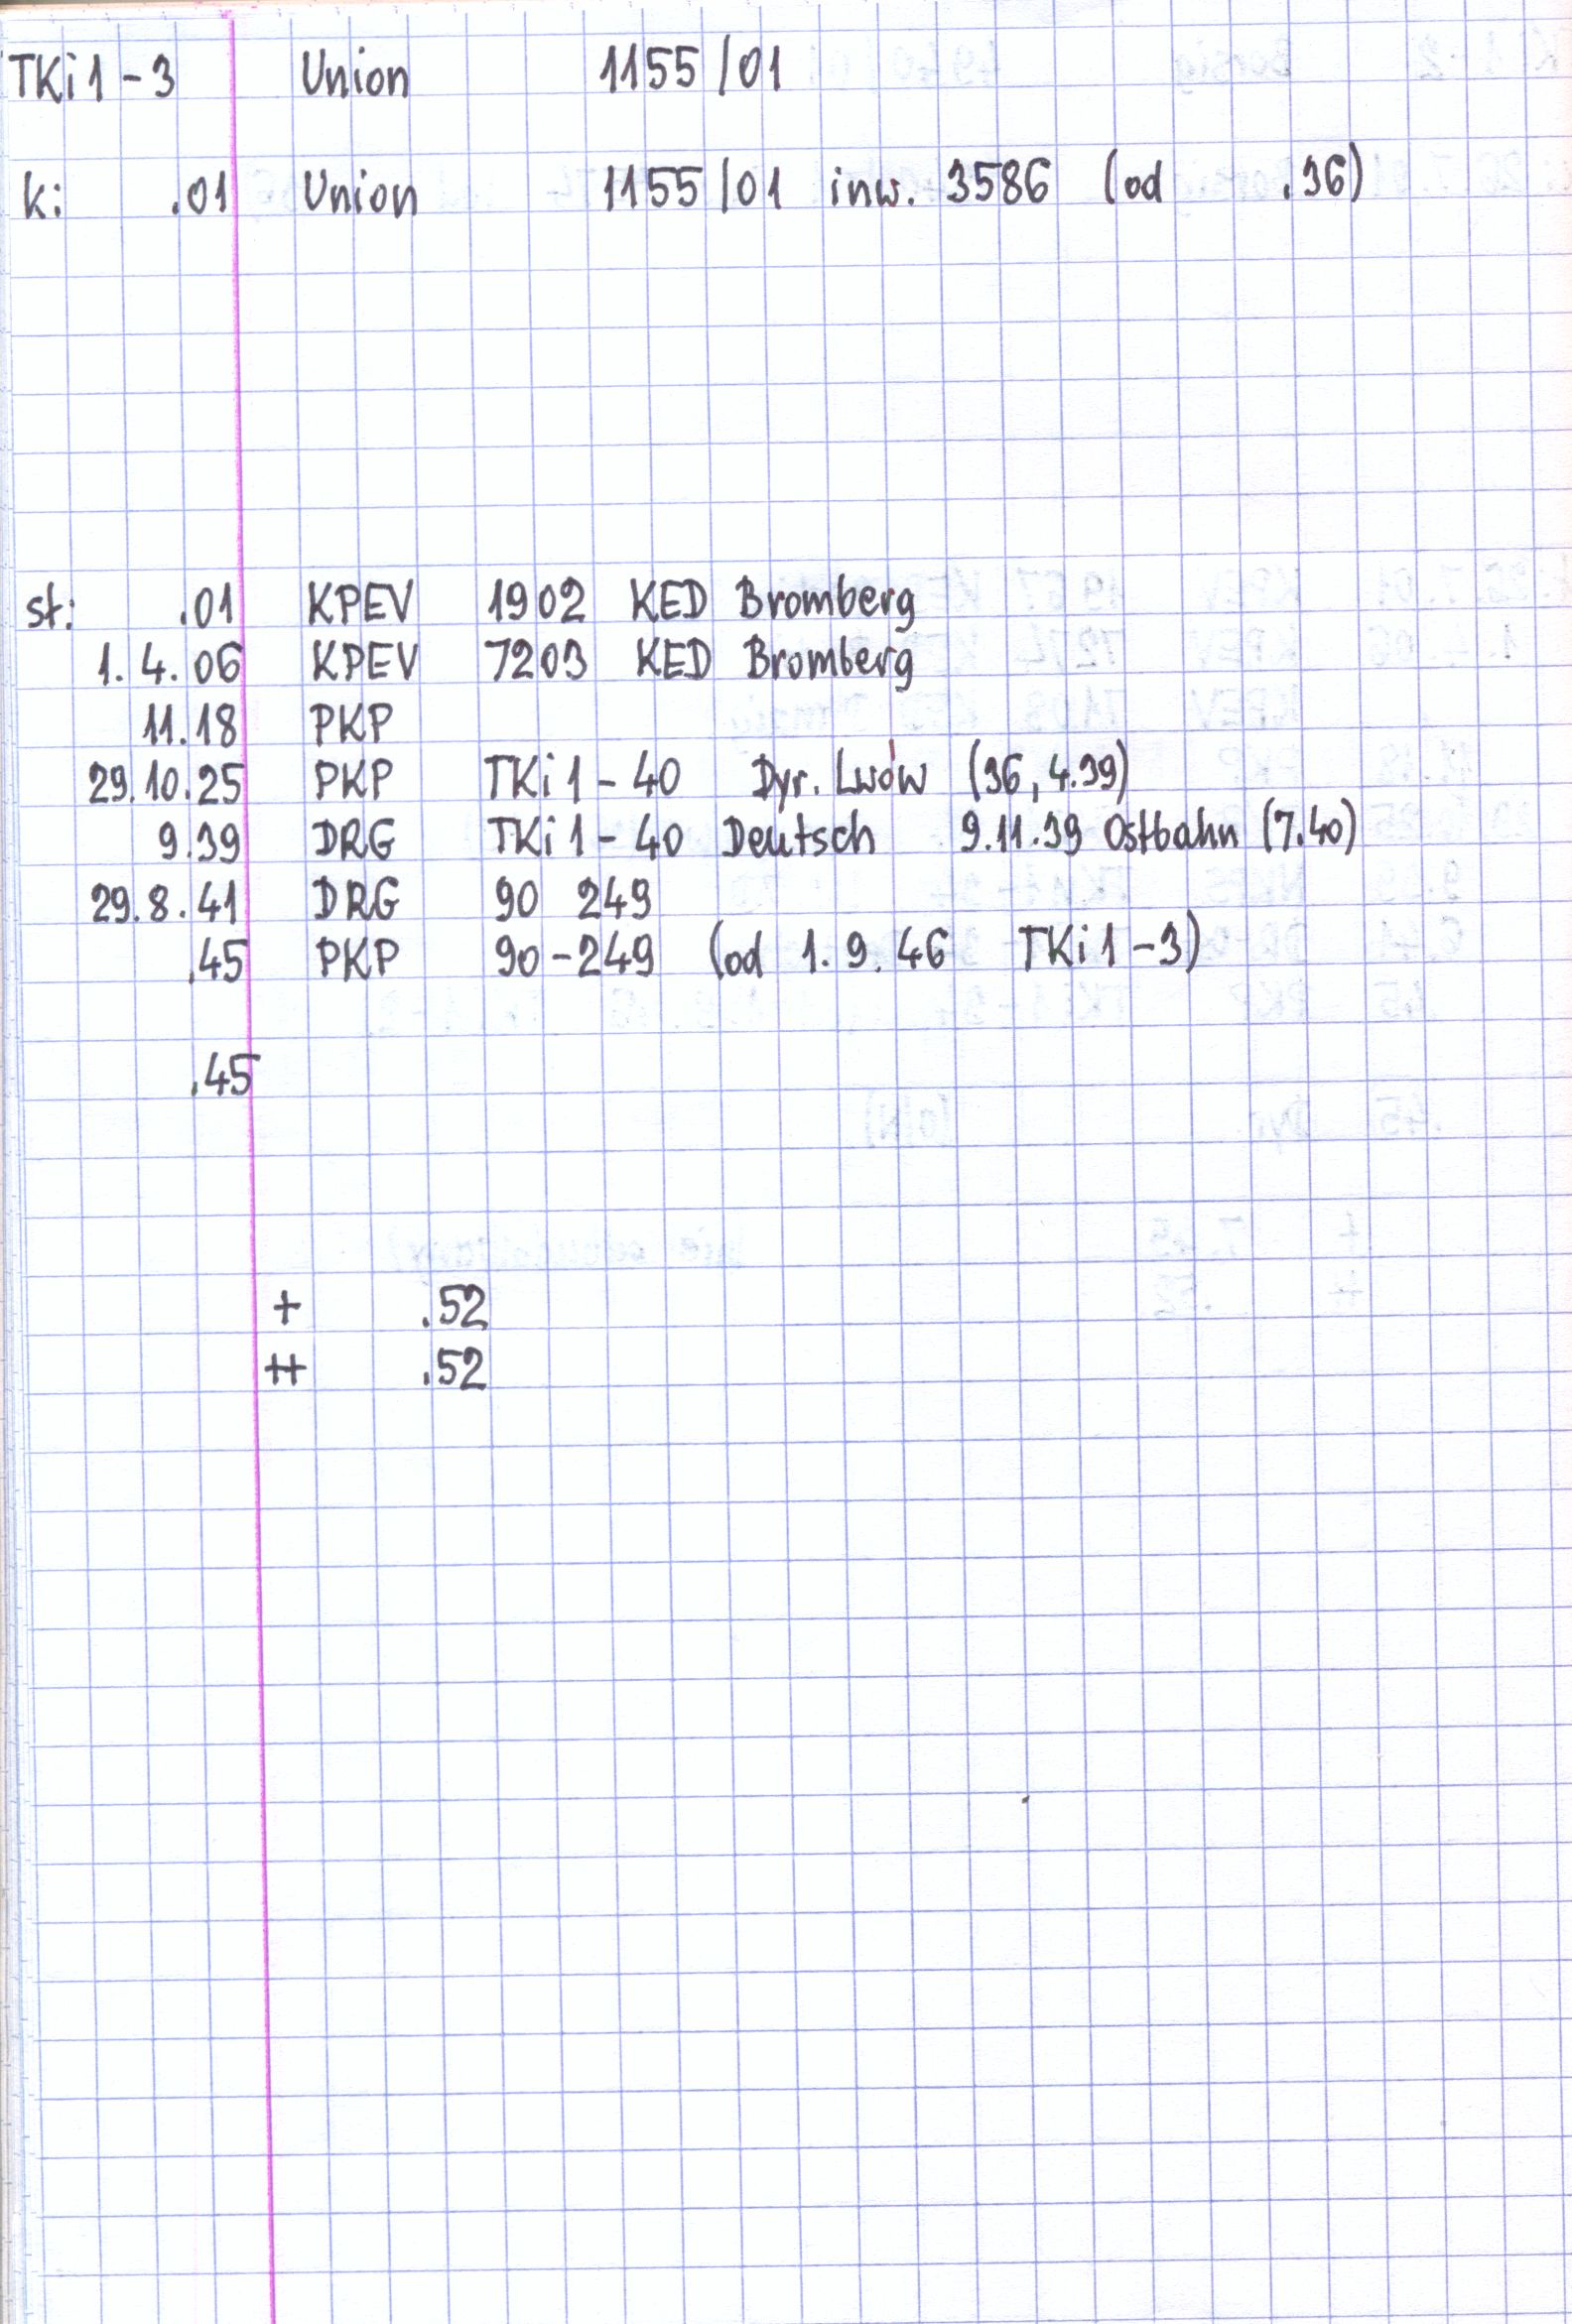 TKi1-3 Union 1155/01
k: .01 Union 1155/01 inw. 3586 (od .36)
st: .01 KPEV 1902 KED Bromberg
1.4.06 KPEV 7203 KED Bromberg
11.18 PKP
29.10.25 PKP TKi1-40 Dyr. Lwów (36, 4.39)
9.39 DRG TKi1-40 Deutsch 9.11.39 Ostbahn (7.40)
29.8.41 DRG 90 249
.45 PKP 90-249 (od 1.9.46 TKi1-3)
.45
+ .52
++ .52